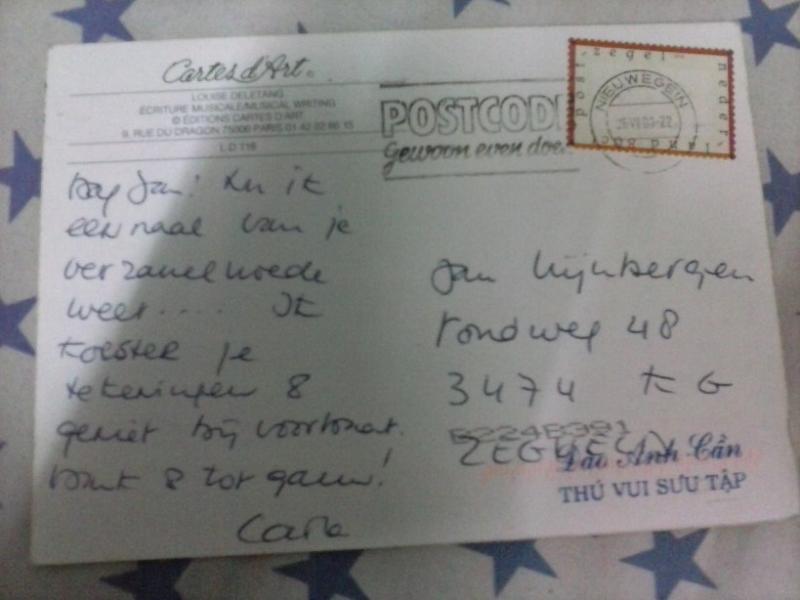 Cartes d'Art
LOUISE DELETANG
ECRITURE MUSICALE/MUSICAL WRITING
© ÉDITIONS CARTES D'ART
9, RUE DU DRAGON 75006 PARIS 01 42 22 86 15
L D 116
POSTCODE
gewoon even doen
post zegel nederland
NIEUWEGEIN
Dag Jan! Nu ik
eenmaal van je
verzamelwoede
weet .... Ik
koester je
tekeningen &
geniet bij voorbaat.
Dank & tot gauw!
Carla
Jan
rondweg 48
3474 KG
ZEGVELD
Đào Anh Cần
THÚ VUI SƯU TẬP